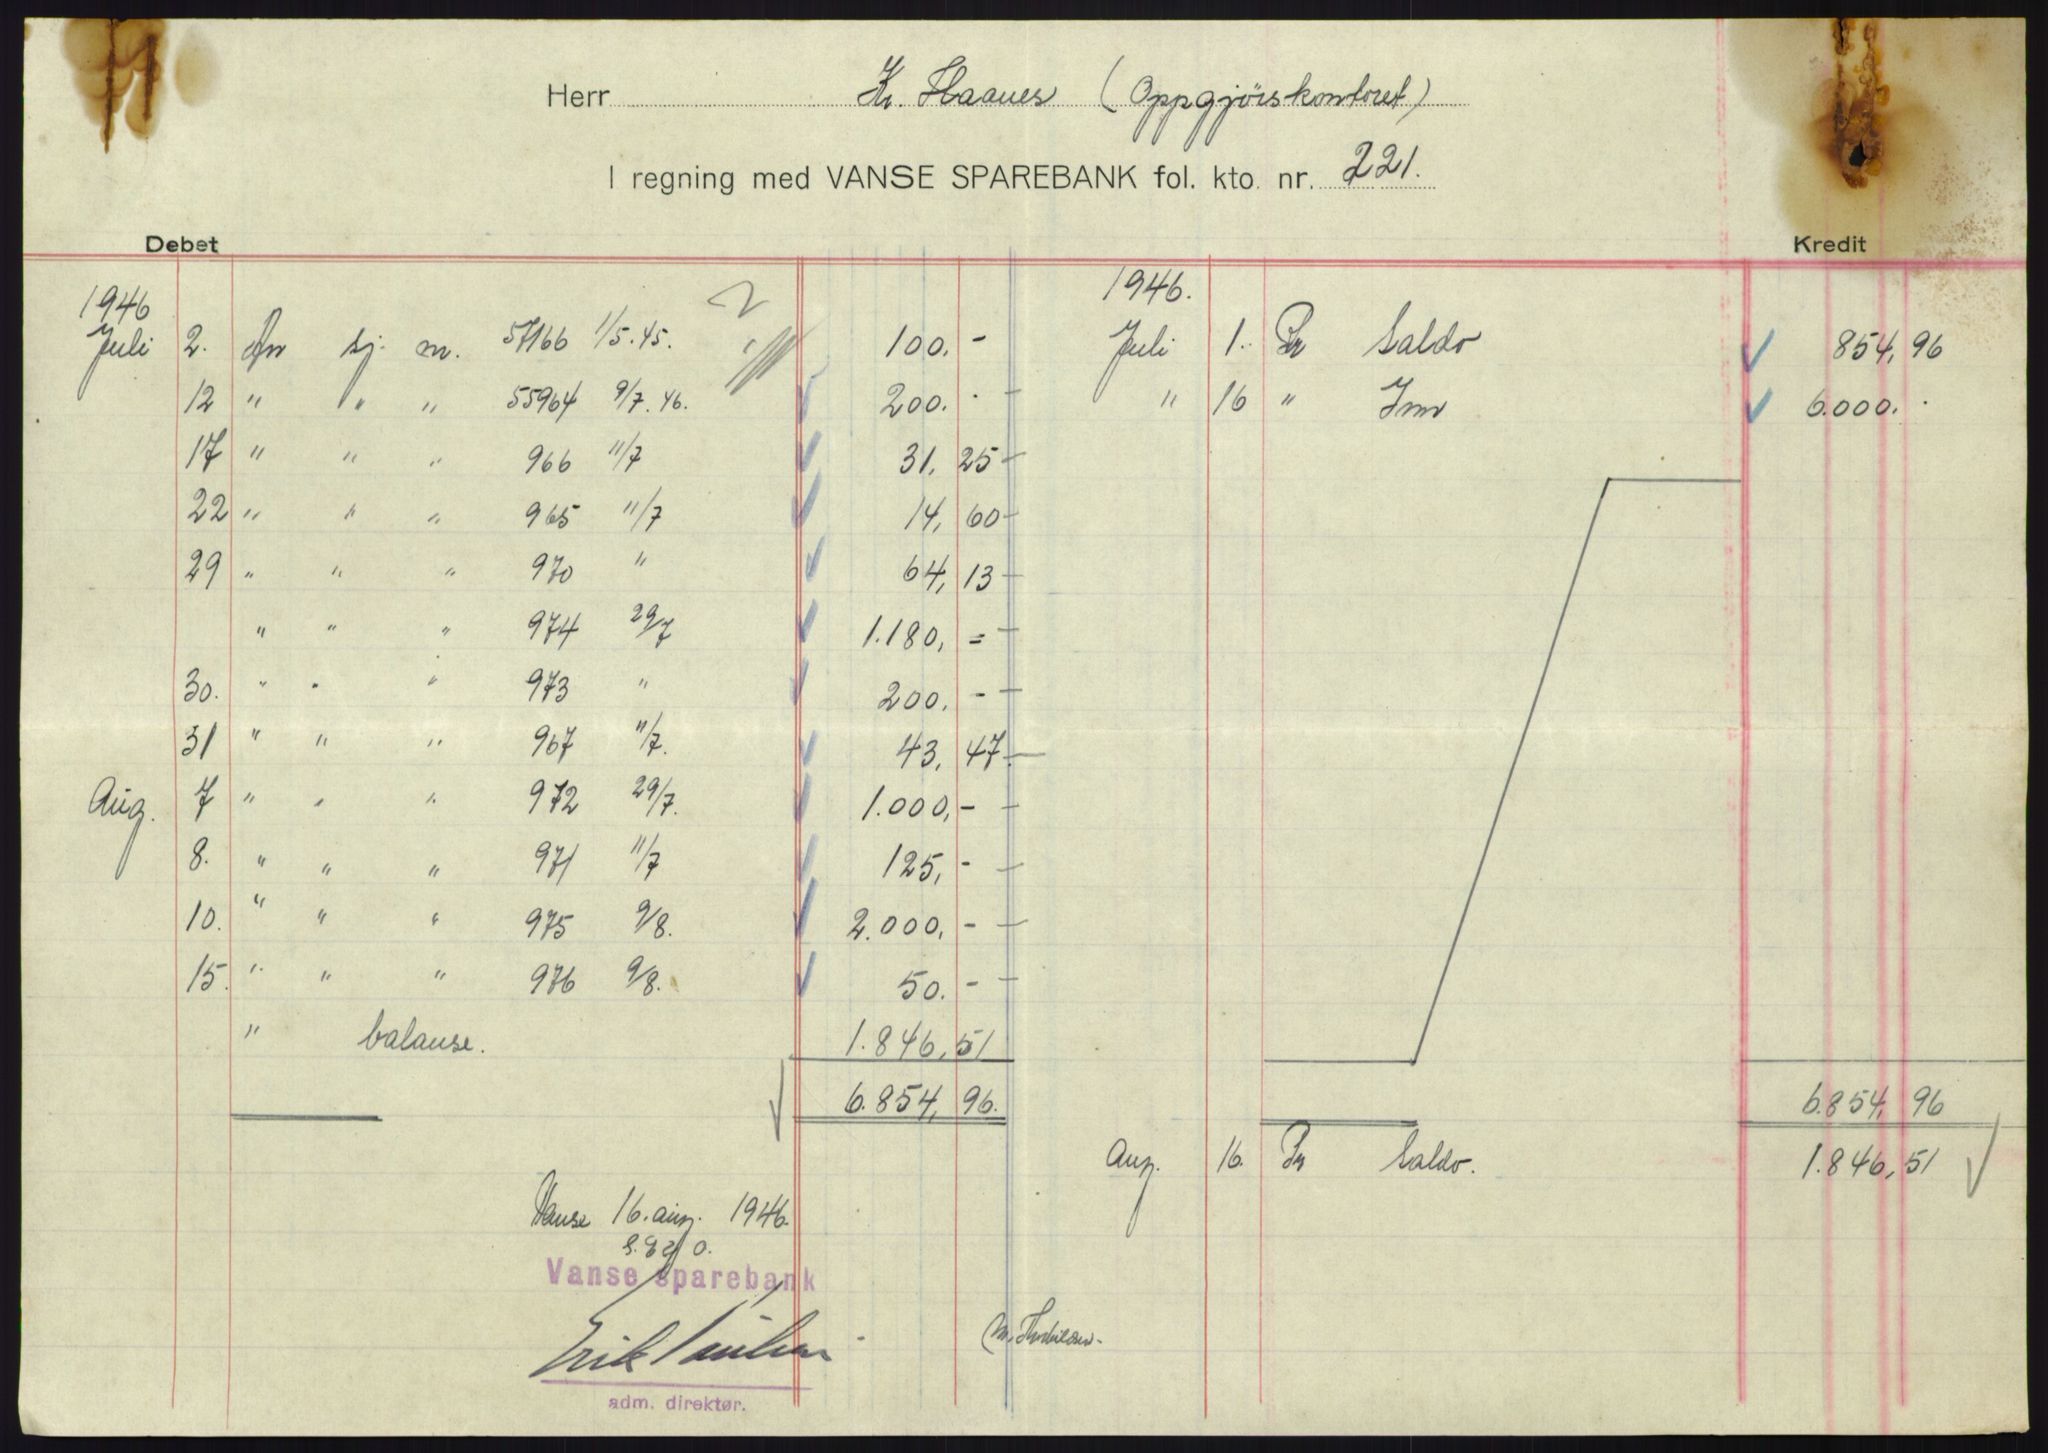 Herr Kr. Haanes (Oppgjörskontoret)
I regning med VANSE SPAREBANK fol. kto. nr. 221.
Debet
Kredit
1946
Juli 2. An sj. m. 57166 1/5.45. 100.-
12 " " " 55964 9/7.46. 200.-
17 " " " 966 11/7 31,25
22 " " " 965 11/7 14,60
29 " " " 970 " 64,13
" " " 974 29/7 1.180,=
30. " " " 973 " 200.-
31 " " " 967 11/7. 43,47
Aug. 7 " " " 972 29/7. 1.000,-
8. " " " 971 11/7 125,-
10. " " " 975 9/8. 2.000,-
15. " " " 976 9/8. 50.-
" balanse. 1.846,51
6.854,96.
1946.
Juli 1. Pr Saldo 854,96
" 16 " Inn 6.000.
6.854,96
Aug. 16. Pr Saldo. 1.846,51
Vanse 16. aug. 1946.
Vanse sparebank
Erik
adm. direktør.